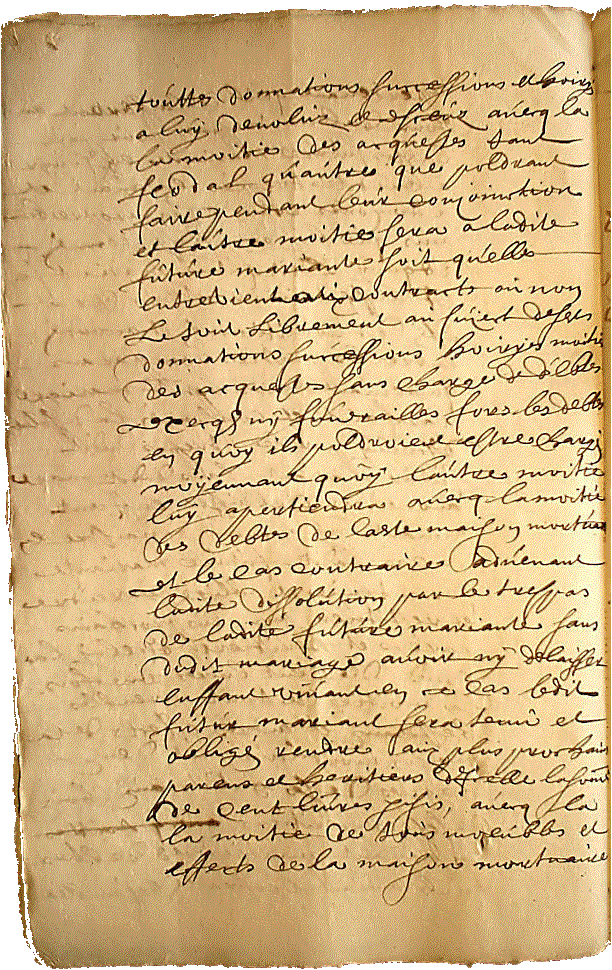 touttes donnations successions et hoiries
a luy devoluz et escheuz avecq la
la moitié des acquestes tant
feodal qu'autre que poldront
faire pendant leur conjonction
et l'autre moitié sera a ladite
future mariante soit qu'elle
entretient contracts ou non
Le tout librement au subject de ses
donnations successions hoiries moitié
des acquestes sans charge de debtes
obsecqz ny funerailles fors les debtes
en quoy ils poldroient estre chargé
moyennant quoy l'autre moitié
luy apertiendra avecq la moitié
des debtes de laste maison mortuaire
et le cas contraire advenant
ladite dissolution par le trespas
de ladite future mariante sans
dudit mariage avoir ny delaisser
enffant vivant en ce cas ledit
futur mariant sera tenu et
obligé rendre aux plus prochain
parens et heritiers d'icelle la somme
de cent livres avecq la
la moitié de tous meubles et
effects de la maison mortuaire